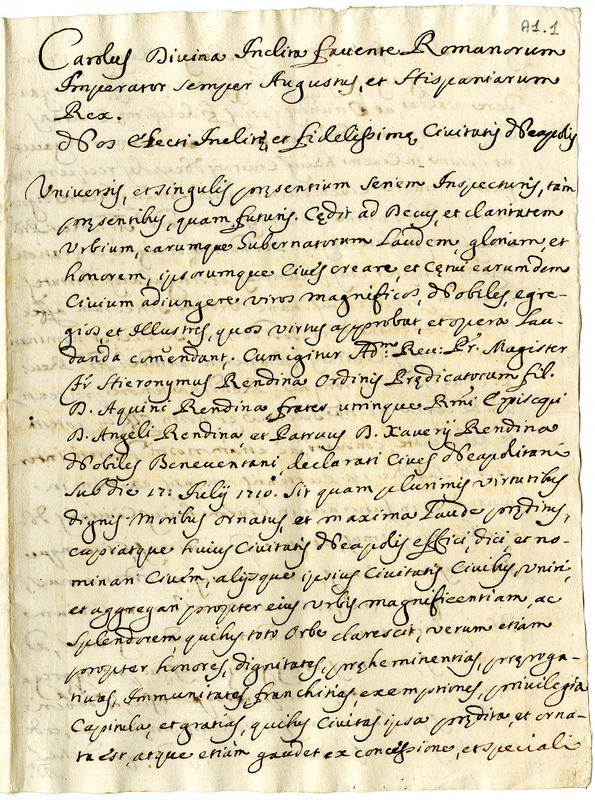 A1.1
Carolus Divina Inclita favente Romanorum
Imperator semper Augustus, et Hispaniarum
Rex.
Nos Electi Inclitę, et fidelissimę Civitatis Neapolis
Universis, et singulis pręsentium seriem Inspecturis, tàm
pręsentibus, quam futuris. Cędit ad Decus, et claritatem
Urbium, earumque Gubernatorum Laudem, gloriam, et
honorem, ipsorumque Cives creare et Cętui earumdem
Civium adiungere viros magnificos, Nobiles, egre-
gios, et Illustres, quos virtus approbat, et opera Lau-
danda comendant. Cum igitur Adm. Reu: Pr. Magister
Fr Hieronymus Rendina Ordinis Prędicatorum fil.
D. Aquini Rendina, frater utrinque Rmi Episcopi
D. Angeli Rendina, et Patruus D. Xaverij Rendina
Nobiles Beneventani, declarati Cives Neapolitani
sub die 17: Julij 1710. Sit quam plurimis virtutibus
dignis Moribus ornatus, et maxima Laude pręditus,
cupiatque huius Civitatis Neapolis effici, dici et no-
minari Civem, alijsque ipsius Civitatis Civibus Uniri,
et aggregari propter eius Urbis magnificentiam, ac
Splendorem, quibus toto Orbe clarescit, verum etiam
propter honores, dignitates, pręheminentias, pręroga-
tivas, Immunitates, franchitias, exemptiones, privilegia
Capitula, et gratias, quibus Civitas ipsa prędita, et orna-
ta est, atque etiàm gaudet ex concessione, et speciali